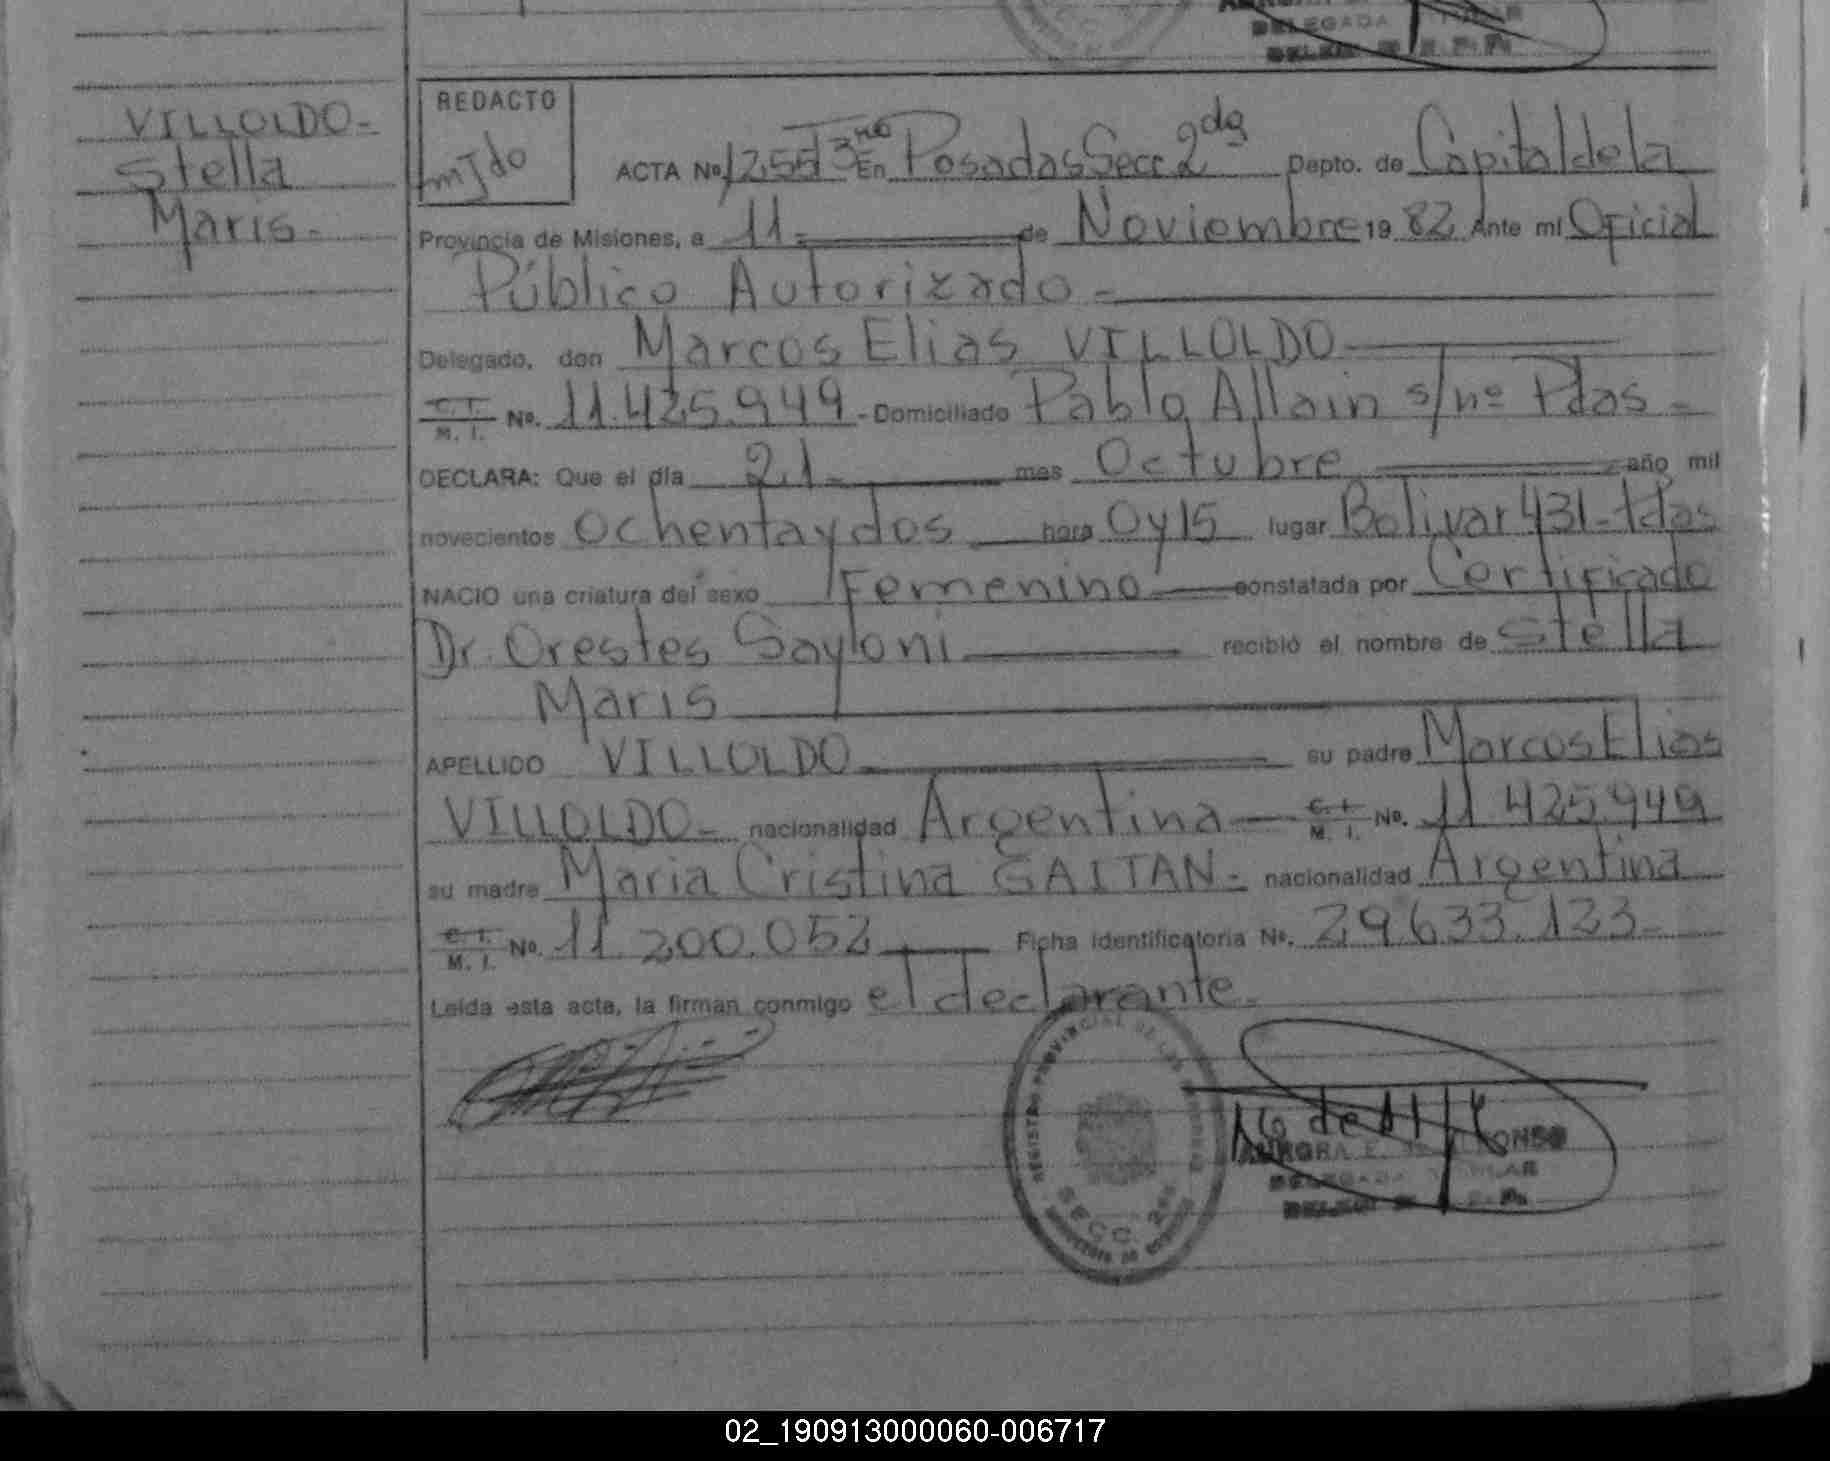 DELEGADA
VILLOLDO-
Stella
Maris-
REDACTO
ACTA Nº 1255 Tº 3ro En Posadas Secc 2da Depto. de Capital de la
Provincia de Misiones, a 11- de Noviembre 19 82 Ante mí Oficial
Público Autorizado-
Delegado, don Marcos Elias VILLOLDO
C. I. M. I. Nº. 11.425.949- Domiciliado Pablo Allain s/nº Pdas-
DECLARA: Que el día 21- mes Octubre año mil
novecientos Ochenta y dos hora 0 y 15 lugar Bolivar 431- Pdas
NACIO una criatura del sexo Femenino constatada por Certificado
Dr. Orestes recibió el nombre de Stella
Maris
APELLIDO VILLOLDO su padre Marcos Elias
VILLOLDO- nacionalidad Argentina C. I. M. I. Nº. 11.425.949
su madre Maria Cristina GAITAN- nacionalidad Argentina
C. I. M. I. Nº. 11.200.052 Ficha identificatoria Nº. 29.633.123-
Leída esta acta, la firman conmigo el declarante-
REGISTRO PROVINCIAL DE LAS PERSONAS
SECC. 2da
AURORA E.
DELEGADA
02_190913000060-006717